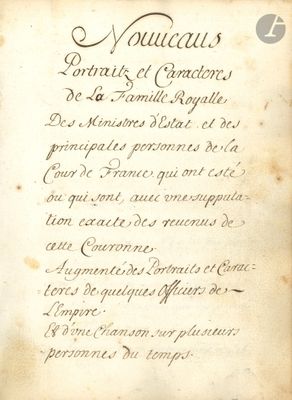 Nouueaus
Portraitz et Caracteres
de La Famille Royalle
Des Ministres d'Estat et des
principales personnes de la
Cour de France qui ont esté
ou qui sont, auec vne supputa-
tion exacte des reuenus de
cette Couronne.
Augmenté des Portraits et Carac-
teres de quelques Officers de
L'Empire.
Et d'vne Chanson sur plusieurs
personnes du temps.